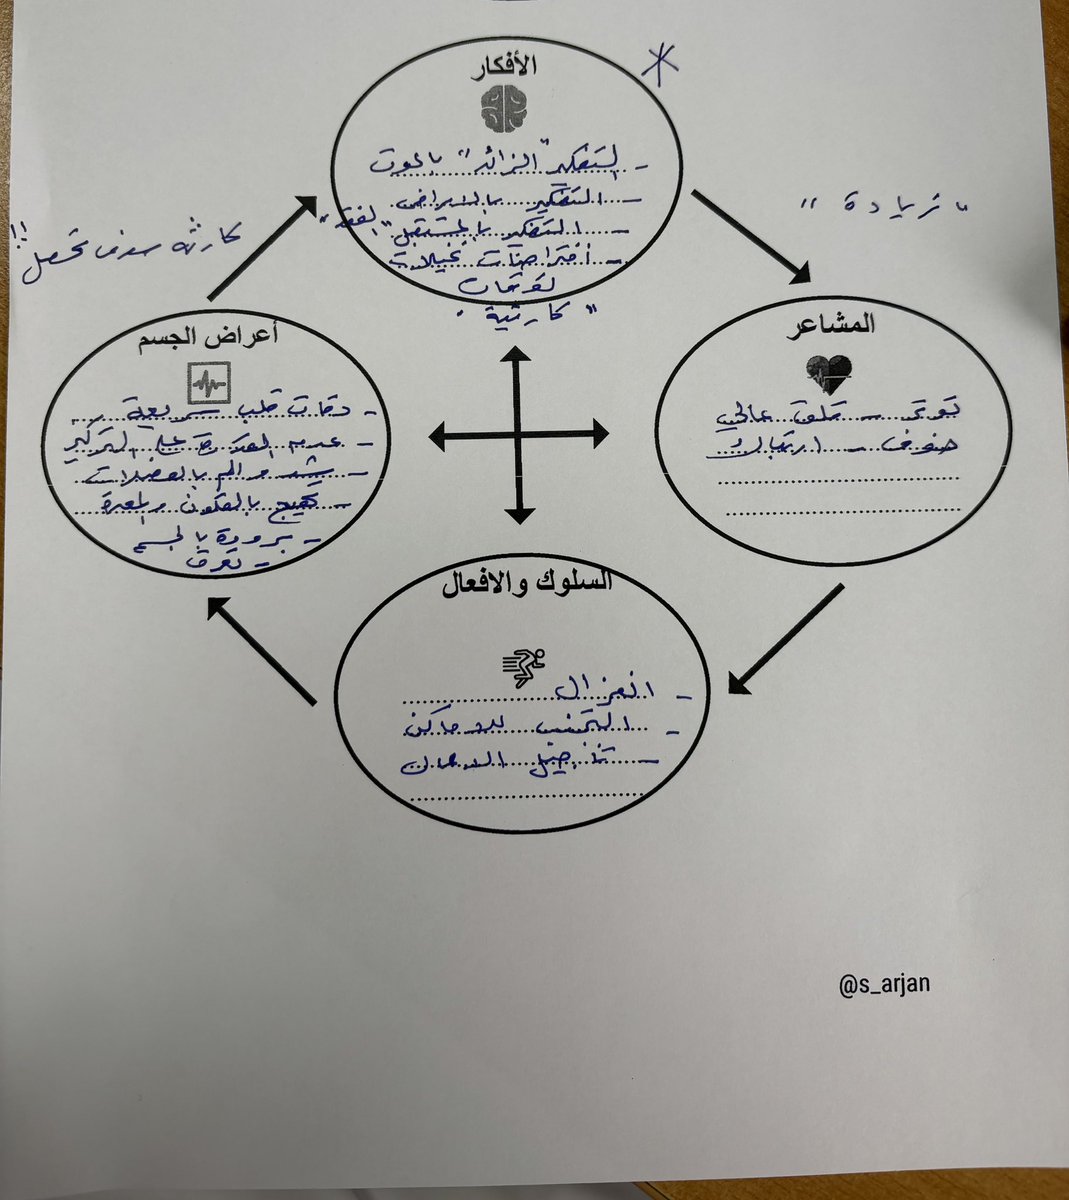 الأفكار
- التفكير "الزائد" بالموت
- التفكير بالامراض
- التفكير بالمستقبل "الفقد"
- افتراضات تخيلات
توقعات
"كارثية".
"زيادة"
كارثه سوف تحصل!!
المشاعر
توتر - قلق عالي
خوف - ارتباك
أعراض الجسم
- دقات قلب سريعة
- عدم القدرة على التركيز
- شد و الم بالعضلات
- تهيج بالقولون والمعدة
- برودة بالجسم
- تعرق
السلوك والافعال
- انعزال
- التجنب للاماكن
- تأجيل الاعمال
@s_arjan